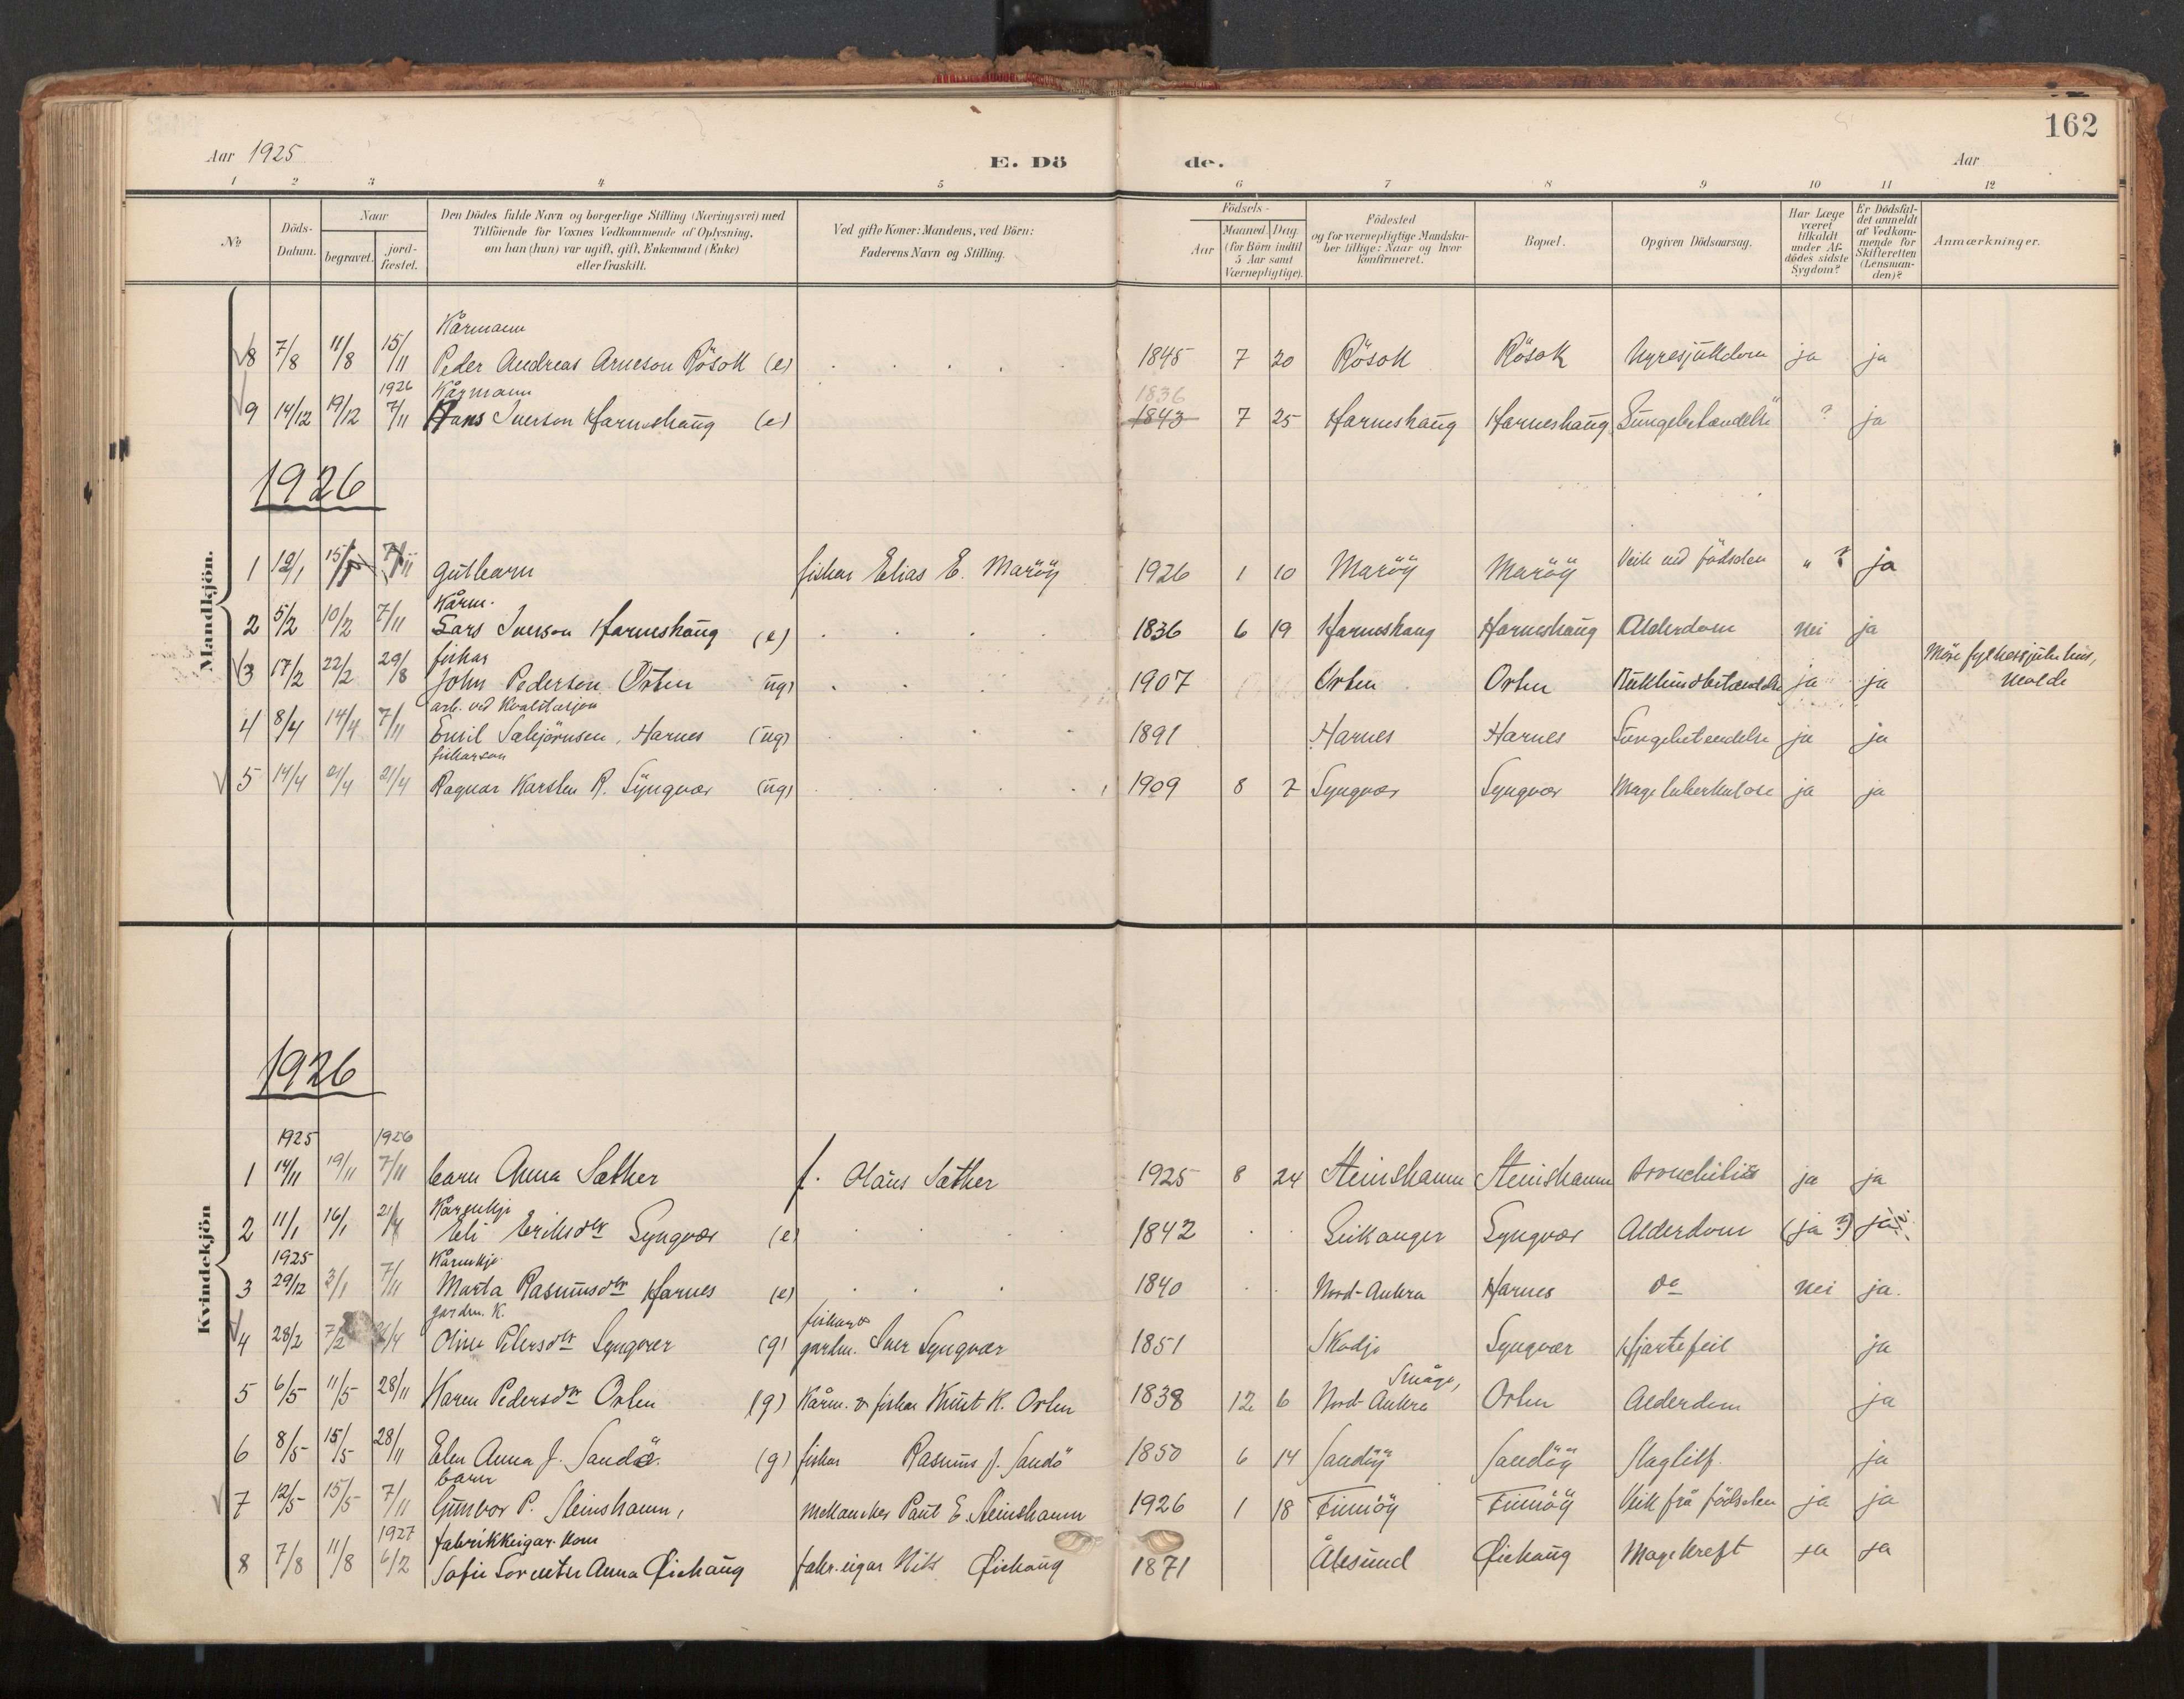 162
Aar 1925 E. Dö de. Aar
1 2 3 4 5 6 7 8 9 10 11 12
№
Döds-Datum.
Naar
begravet.
jord-fæstet.
Den Dödes fulde Navn og borgerlige Stilling (Næringsvei) med
Tilföiende for Voxnes Vedkommende af Oplysning,
om han (hun) var ugift, gift, Enkemand (Enke)
eller fraskilt.
Ved gifte Koner: Mandens, ved Börn:
Faderens Navn og Stilling.
Födsels-
Aar
Maaned. Dag.
(for Börn indtil
5 Aar samt
Værnepligtige).
Födested
og for værnepligtige Mandska-
ber tillige: Naar og hvor
konfirmeret.
Bopæl.
Opgiven Dödsaarsag.
Har Læge
været
tilkaldt
under Af-
dödes sidste
Sygdom?
Er Dödsfal-
det anmeldt
af Vedkom-
mende for
Skifteretten
(Lensman-
den)?
Anmærkninger.
Mandkjön.
Kårmann
8 7/8 11/8 15/11 Peder Andreas Arneson Rösok (e) 1845 7 20 Rösok Rösok Nyresjukdom ja ja
1926 Kårmann 1836
9 14/12 19/12 7/11 Hans Iverson Harneshaug (e) 1843 7 25 Harneshaug Harneshaug Lungebetændelse ? ja
1926
1 12/1 15/1 7/11 gutbarn fiskar Elias E. Maröy 1926 1 10 Maröy Maröy Veik ved födselen " ? ja
Kårm.
2 5/2 10/2 7/11 Lars Iverson Harneshaug (e) 1836 6 19 Harneshaug Harneshaug Alderdom nei ja
fiskar Möre fylkessjukehus,
3 17/2 22/2 29/8 John Pederson Orten (ug) 1907 Orten Orten Bukhindbetændelse ja ja Molde
arb. ved
4 8/4 14/4 7/11 Emil Salbjörnsen, Harnes (ug) 1891 Harnes Harnes Lungebetendelse ja ja
fiskarson
5 14/4 21/4 21/4 Ragnar Karsten R. Syngvær (ug) 1909 8 7 Syngvær Syngvær Magetuberkulose ja ja
Kvindekjön
1926
1925 1926
1 14/11 19/11 7/11 barn Anna Sæther f. Olaus Sæther 1925 8 24 Steinshamn Steinshamn Bronchitis ja ja
Kårenkje
2 11/1 16/1 21/4 Eli Eriksdtr Syngvær (e) 1842 Leikanger Syngvær Alderdom (ja?) ja
1925 Kårenkje
3 29/12 3/1 7/11 Marta Rasmusdtr Harnes (e) 1840 Nord-Aukra Harnes do nei ja.
gardm. K. fiskar &
4 28/2 7/2 21/4 Oline Petersdtr Syngvær (g) gardm. Iver Syngvær 1851 Skodje Syngvær Hjartefeil ja
Småge,
5 6/5 11/5 28/11 Karen Pedersdtr Orten (g) Kårm. & fiskar Knut K. Orten 1838 12 6 Nord-Aukra Orten Alderdom ja
6 8/5 15/5 28/11 Elen Anna J. Sandö (g) fiskar Rasmus J. Sandö 1850 6 14 Sandöy Sandöy Slagtilf. ja
barn
7 12/5 15/5 7/11 Gunvor P. Steinshamn, mekaniker Paul E. Steinshamn 1926 1 18 Finnöy Finnöy Veik frå födselen ja ja
1927 fabrikkeigar-kone
8 7/8 11/8 6/2 Sofie Lorentze Anna Öiehaug fabr.eigar Nils Öiehaug 1871 Ålesund Öiehaug Magekreft ja ja